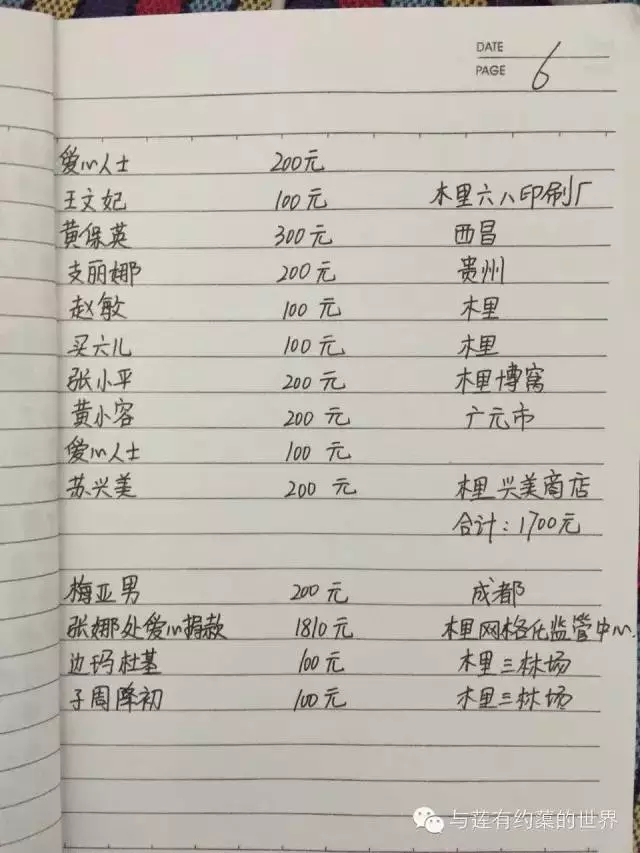 DATE
PAGE 6
爱心人士 200元
王文妃 100元 木里六八印刷厂
黄保英 300元 西昌
支丽娜 200元 贵州
赵敏 100元 木里
买六儿 100元 木里
张小平 200元 木里博窝
黄小容 200元 广元市
爱心人士 100元
苏兴美 200元 木里兴美商店
合计：1700元
梅亚男 200元 成都
张娜处爱心捐款 1810元 木里网格化监管中心.
边玛杜基 100元 木里三林场
子周降初 100元 木里三林场
与莲有约蕖的世界